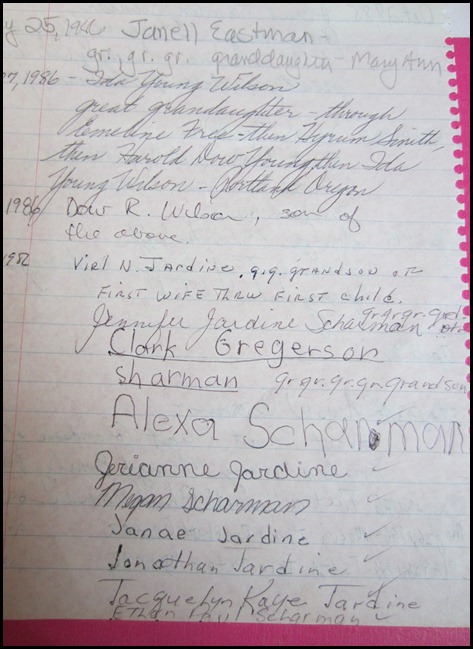 y 25, 1986 Janell Eastman -
gr. gr. gr. granddaughter - Mary Ann
27, 1986 - Ida Young Wilson
great grandaughter - through
Emeline Free - then Hyrum Smith,
then Harold Dow Young, then Ida
Young Wilson - Portland Oregon
1986 Dow R. Wilson, son of
the above.
1986 Virl N. Jardine, g.g. grandson of
first wife thru first child.
Jennifer Jardine Scharman gr.gr.gr.
Clark Gregerson
Sharman gr. gr. gr. gr. grandson
Alexa Scharman
Jerianne Jardine
Megan Scharman
Janae Jardine
Jonathan Jardine
Jacquelyn Kaye Jardine
Ethan Paul Scharman